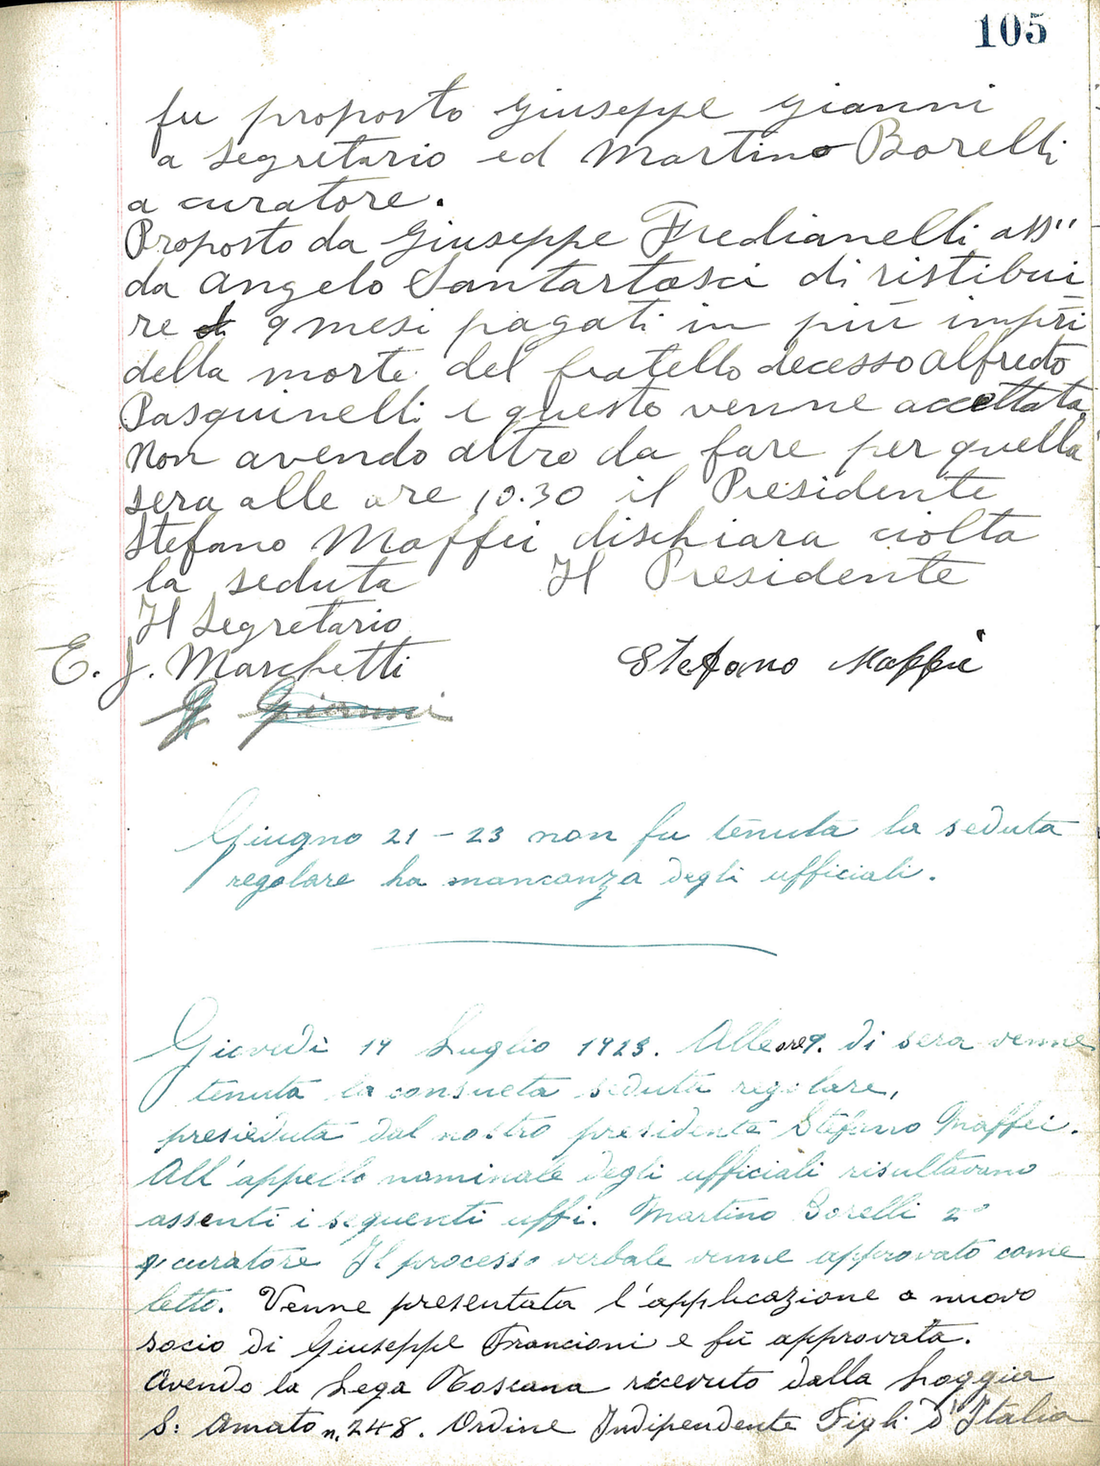 105
fu proposto Giuseppe Gianni
a segretario ed Martino Borelli
a curatore.
Proposto da Giuseppe Fredianelli ass"
da Angelo Santartasci di ristibui
re 9 mesi pagati in più
della morte del fratello decesso Alfredo
Pasquinelli e questo venne accettata
Non avendo altro da fare per quella
sera alle ore 10.30 il Presidente
Stefano Maffei dischiara ciolta
la seduta Il Presidente
Il Segretario
E. J. Marchetti Stefano Maffei
G Gianni
Giugno 21 - 23 non fu tenuta la seduta
regolare ha mancanza degli ufficiali.
Giovedì 19 Luglio 1923. Alle ore 9. di sera venne
tenuta la consueta seduta regolare,
presieduta dal nostro presidente Stefano Maffei.
All'appello nominale degli ufficiali risultavano
assenti i seguenti uffi. Martino Borelli 2º
curatore Il processo verbale venne approvato come
letto. Venne presentata l'applicazione a nuovo
socio di Giuseppe Francioni e fu approvata.
Avendo la Lega Toscana ricevuto dalla Loggia
S: Amato n. 248. Ordine Indipendente Figli d'Italia